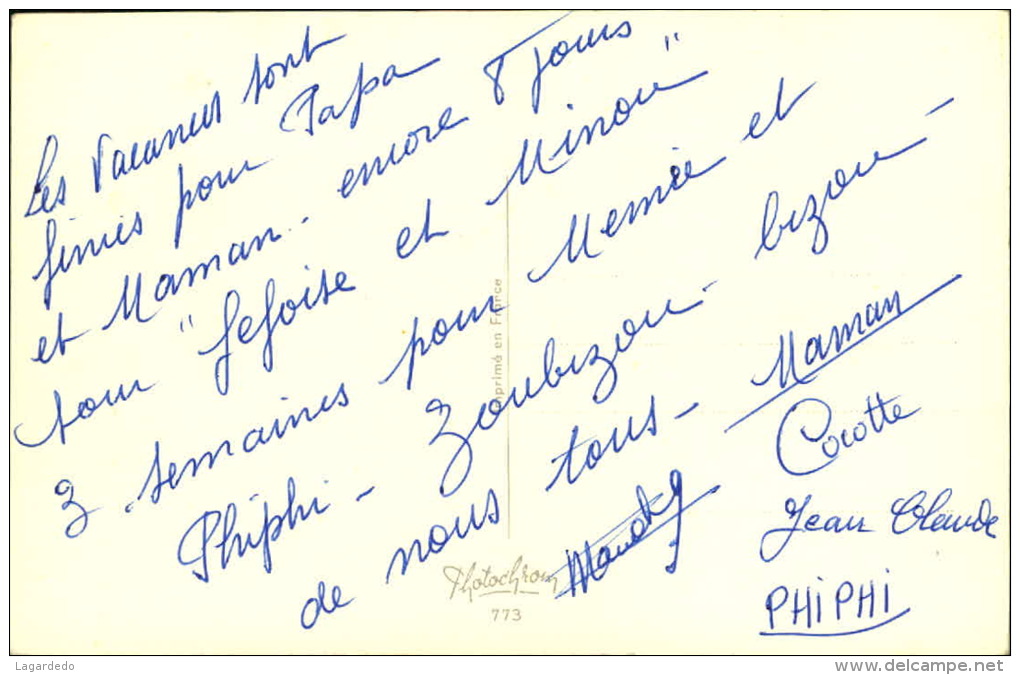 Les Vacances sont
finies pour Papa
et Maman - encore 8 jours
pour "Jojoise et Minou"
3 semaines pour Memée et
Phiphi - Zoubizou - bizou -
de nous tous -
Maman
Cocotte
Jean Claude
PHiPHi
Imprimé en France
Photochrom
773
Lagardedo
www.delcampe.net